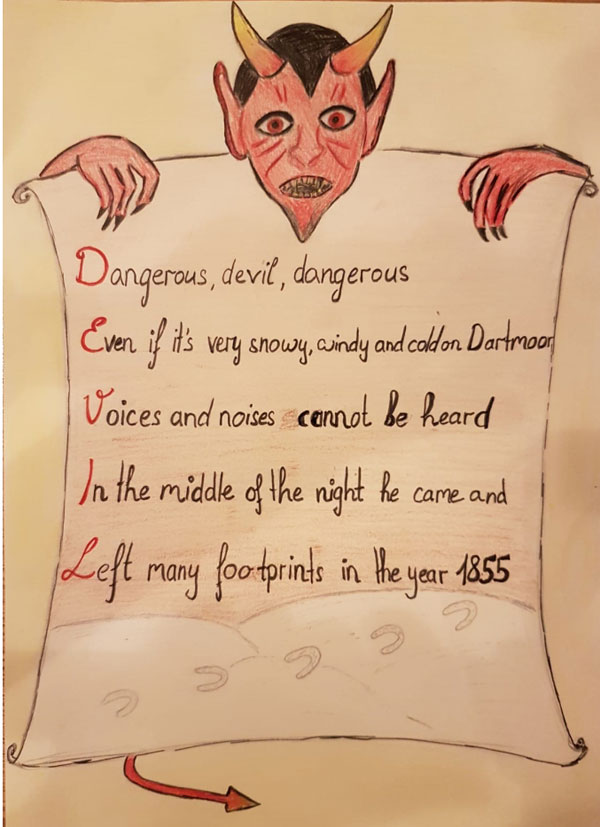 Dangerous, devil, dangerous
Even if it's very snowy, windy and cold on Dartmoor,
Voices and noises cannot be heard
In the middle of the night he came and
Left many footprints in the year 1855